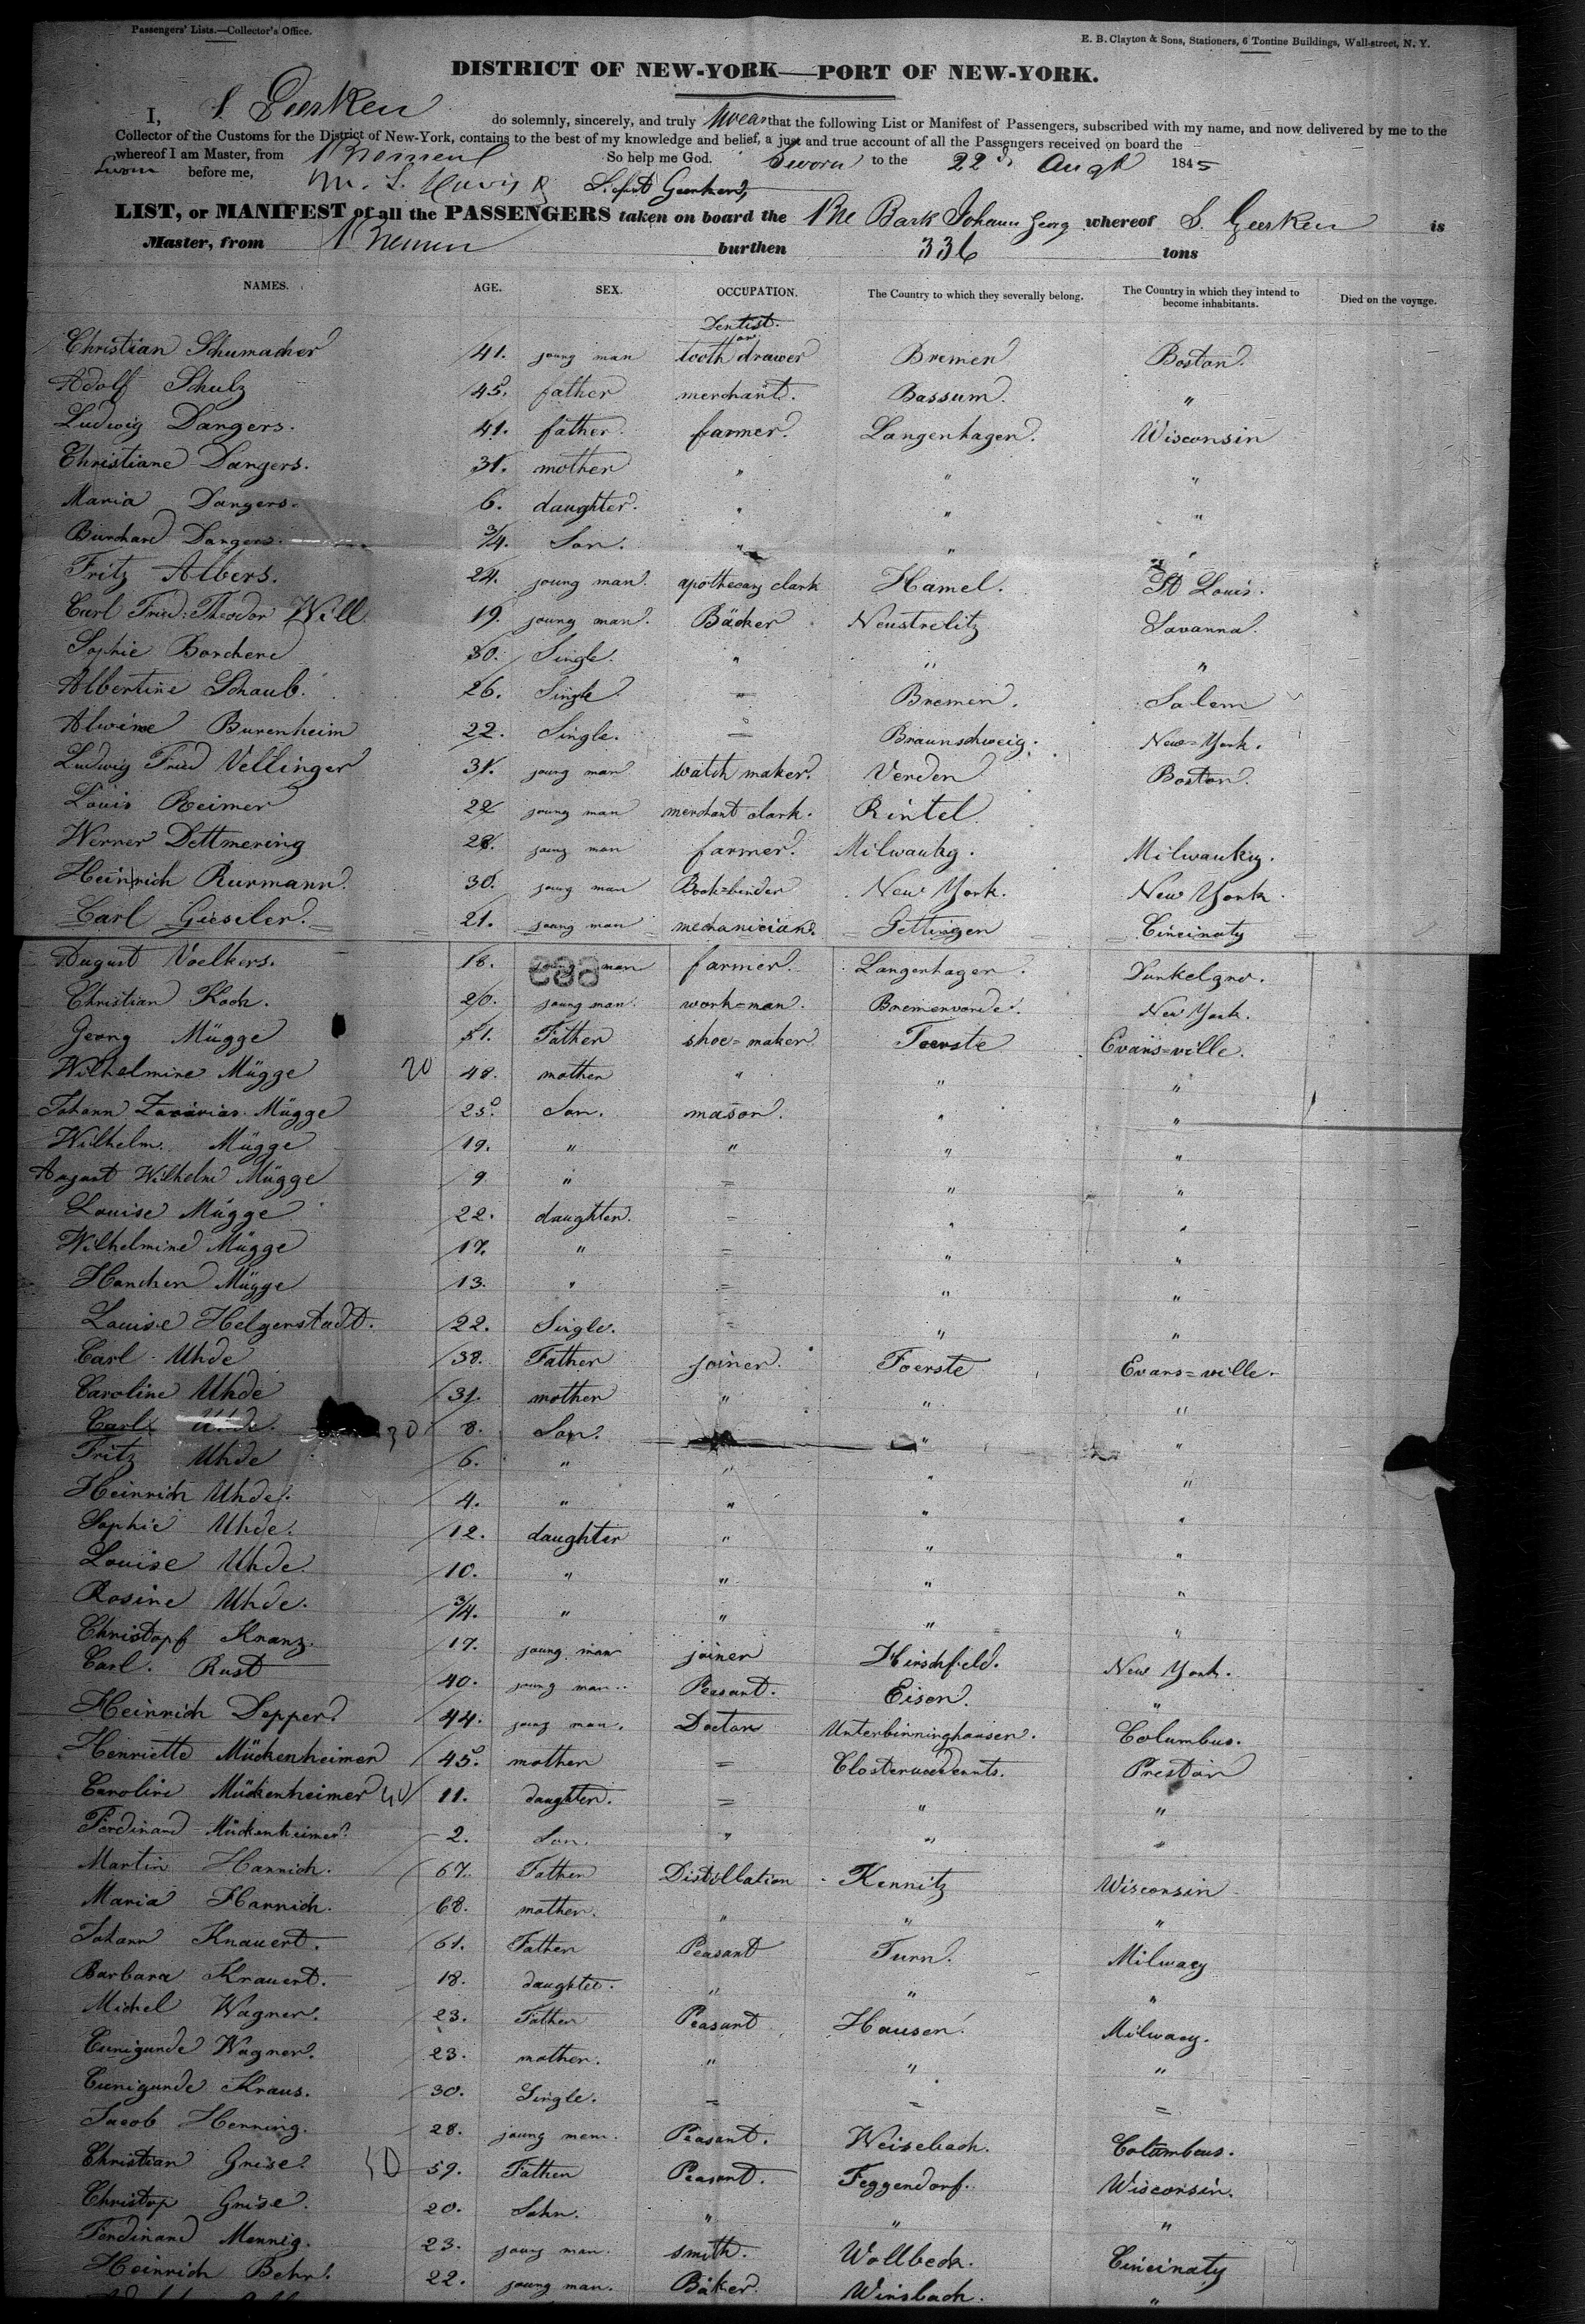 Passengers' Lists.—Collector's Office.
E. B. Clayton & Sons, Stationers, 6 Tontine Buildings, Wall-street, N. Y.
DISTRICT OF NEW-YORK—PORT OF NEW-YORK.
I, S. Geerken do solemnly, sincerely, and truly swear that the following List or Manifest of Passengers, subscribed with my name, and now delivered by me to the
Collector of the Customs for the District of New-York, contains to the best of my knowledge and belief, a just and true account of all the Passengers received on board the
whereof I am Master, from Bremen So help me God. Sworn to the 22d Augt 1845
Sworn before me, Geerken,
LIST, or MANIFEST of all the PASSENGERS taken on board the Bre Bark Johann Georg whereof S. Geerken is
Master, from Bremen burthen 336 tons
NAMES. AGE. SEX. OCCUPATION. The Country to which they severally belong. The Country in which they intend to become inhabitants. Died on the voyage.
Christian Schumacher 41. young man Dentist or tooth drawer Bremen Boston.
Adolf Schulz 45. father merchant. Bassum. "
Ludwig Dangers. 41. father. farmer. Langenhagen. Wisconsin
Christiane Dangers. 31. mother " " "
Maria Dangers. 6. daughter. " " "
Burchard Dangers. 3/4. Son. " " "
Fritz Albers. 24. young man. apothecary clark Hamel. St Louis.
Carl Fried: Theodor Will 19. young man. Bäcker Neustrelitz Savanna.
Sophie Borchers 30. Single. " " "
Albertine Schaub. 26. Single = Bremen. Salem
Alwine Burenheim 22. Single. = Braunschweig. New=York.
Ludwig Fried Vellinger 31. young man watch maker. Verden Boston.
Louis Reimer 22 young man merchant clark. Rintel
Werner Dettmering 28. young man farmer. Milwauky. Milwaukiy.
Heinrich Rurmann. 30. young man Book=binder New York. New York.
Carl Gieseler. 21. young man mechanician. Gettingen Cincinaty
August Voelkers. 18. young man farmer. Langenhagen. Dunkelgrw.
683
Christian Koch. 20. young man. work=man. Bremervorde. New York.
Georg Mügge 51. Father shoe=maker Foerste Evans=ville.
Wilhelmine Mügge 20 48. mother " " "
Johann Zacarias Mügge 25. Son. mason. " "
Wilhelm. Mügge 19. " " " "
August Wilhelm Mügge 9 " = " "
Louise Mügge 22. daughter. = " "
Wilhelmine Mügge 17. " = " "
Hanchen Mügge 13. " = " "
Louise Helgerstadt. 22. Single. = " "
Carl Uhde 38. Father joiner. Foerste Evans=ville.
Caroline Uhde 31. mother " " "
Carl Uhde. 30 8. Son. " "
Fritz Uhde 6. " " " "
Heinrich Uhde. 4. " " " "
Sophie Uhde. 12. daughter " " "
Louise Uhde. 10. " " " "
Rosine Uhde. 3/4. " " " "
Christopf Kranz. 17. young man joiner Hirschfeld. New York.
Carl. Rust 40. young man. Peasant. Eisen. "
Heinrich Depper. 44. young man. Doctor Unterbinninghausen. Columbus.
Henriette Mückenheimer 45. mother = Preston
Caroline Mückenheimer 40 11. daughter. = " "
Ferdinand Mückenheimer 2. Son. " " "
Martin Hannich. 67. Father Distillation Kennitz Wisconsin
Maria Hannich. 68. mother. " " "
Johann Knauert. 61. Father Peasant Turn. Milwacy
Barbara Knauert. 18. daughter. " " "
Michel Wagner. 23. Father Peasant Hausen. Milwacy.
Cunigunde Wagner. 23. mother. " " "
Cunigunde Kraus. 30. Single. = = =
Jacob Henning. 28. young men. Peasant. Weisebach. Columbus.
Christian Grise. 50 59. Father Peasant. Feggendorf. Wisconsin.
Christop Grise. 20. Sohn. " " "
Ferdinand Mennig. 23. young man. smith. Wollbeck. Cincinaty
Heinrich Behr. 22. young man. Bäker. Winsbach. "